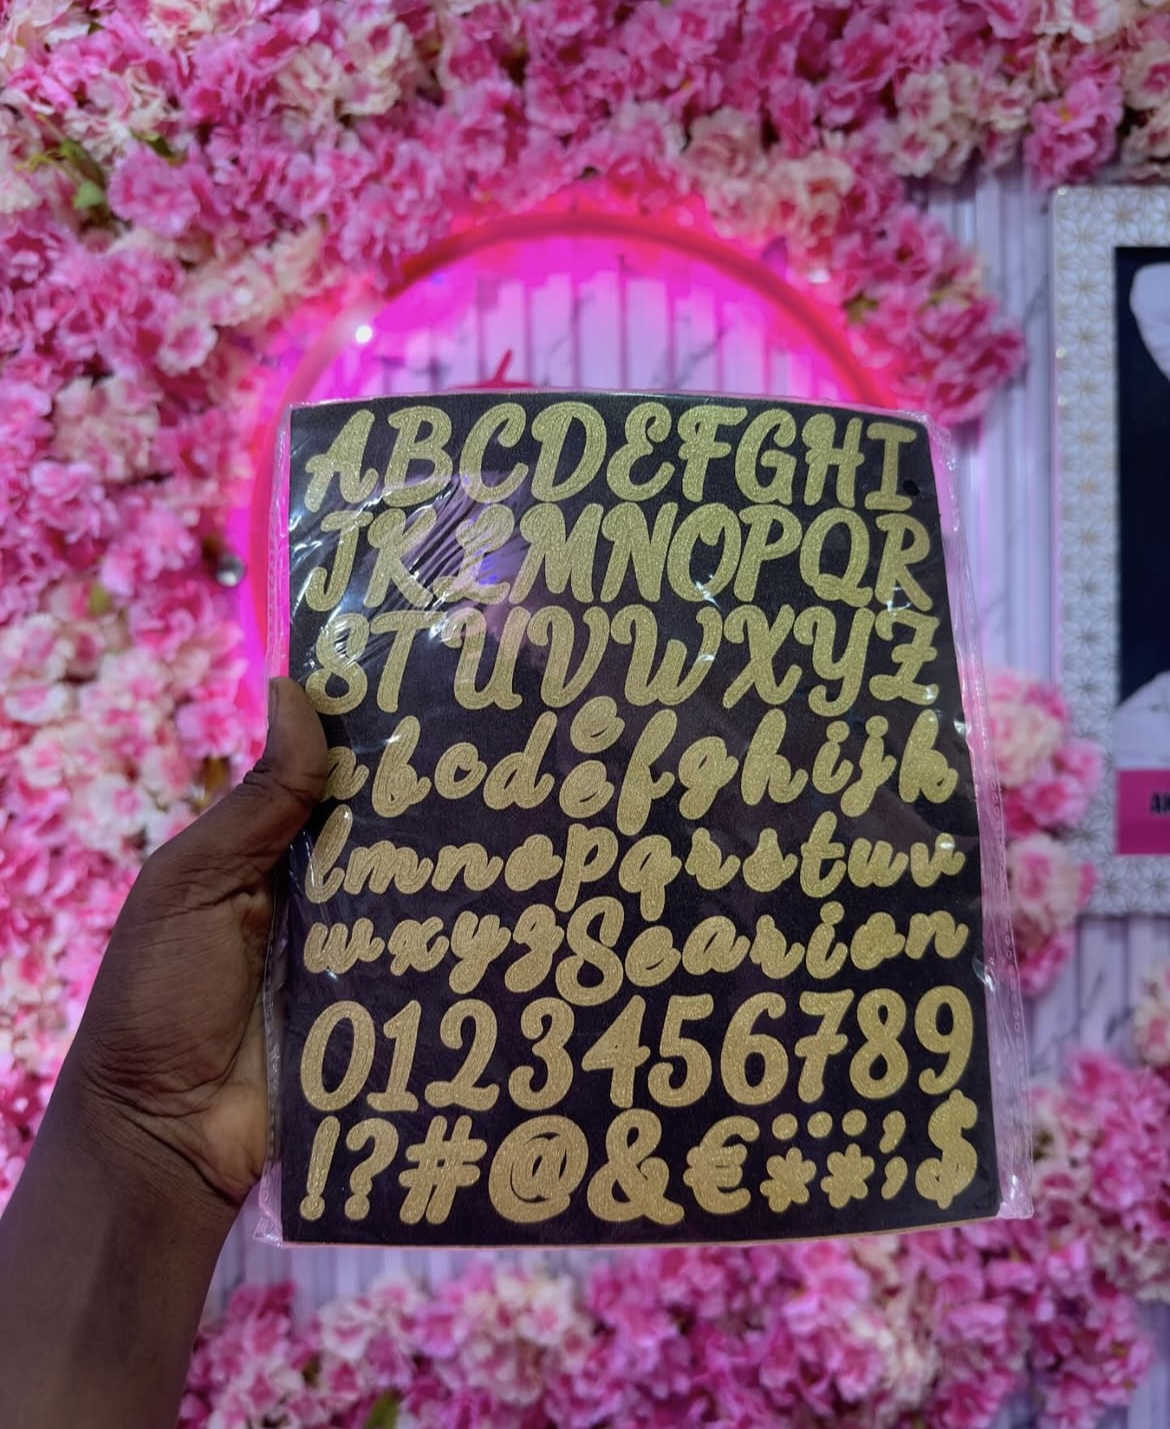 ABCDEFGHI
JKLMNOPQR
STUVWXYZ
abcdeefghijk
lmnopqrstuv
wxyzSearion
0123456789
!?#@&€**;$